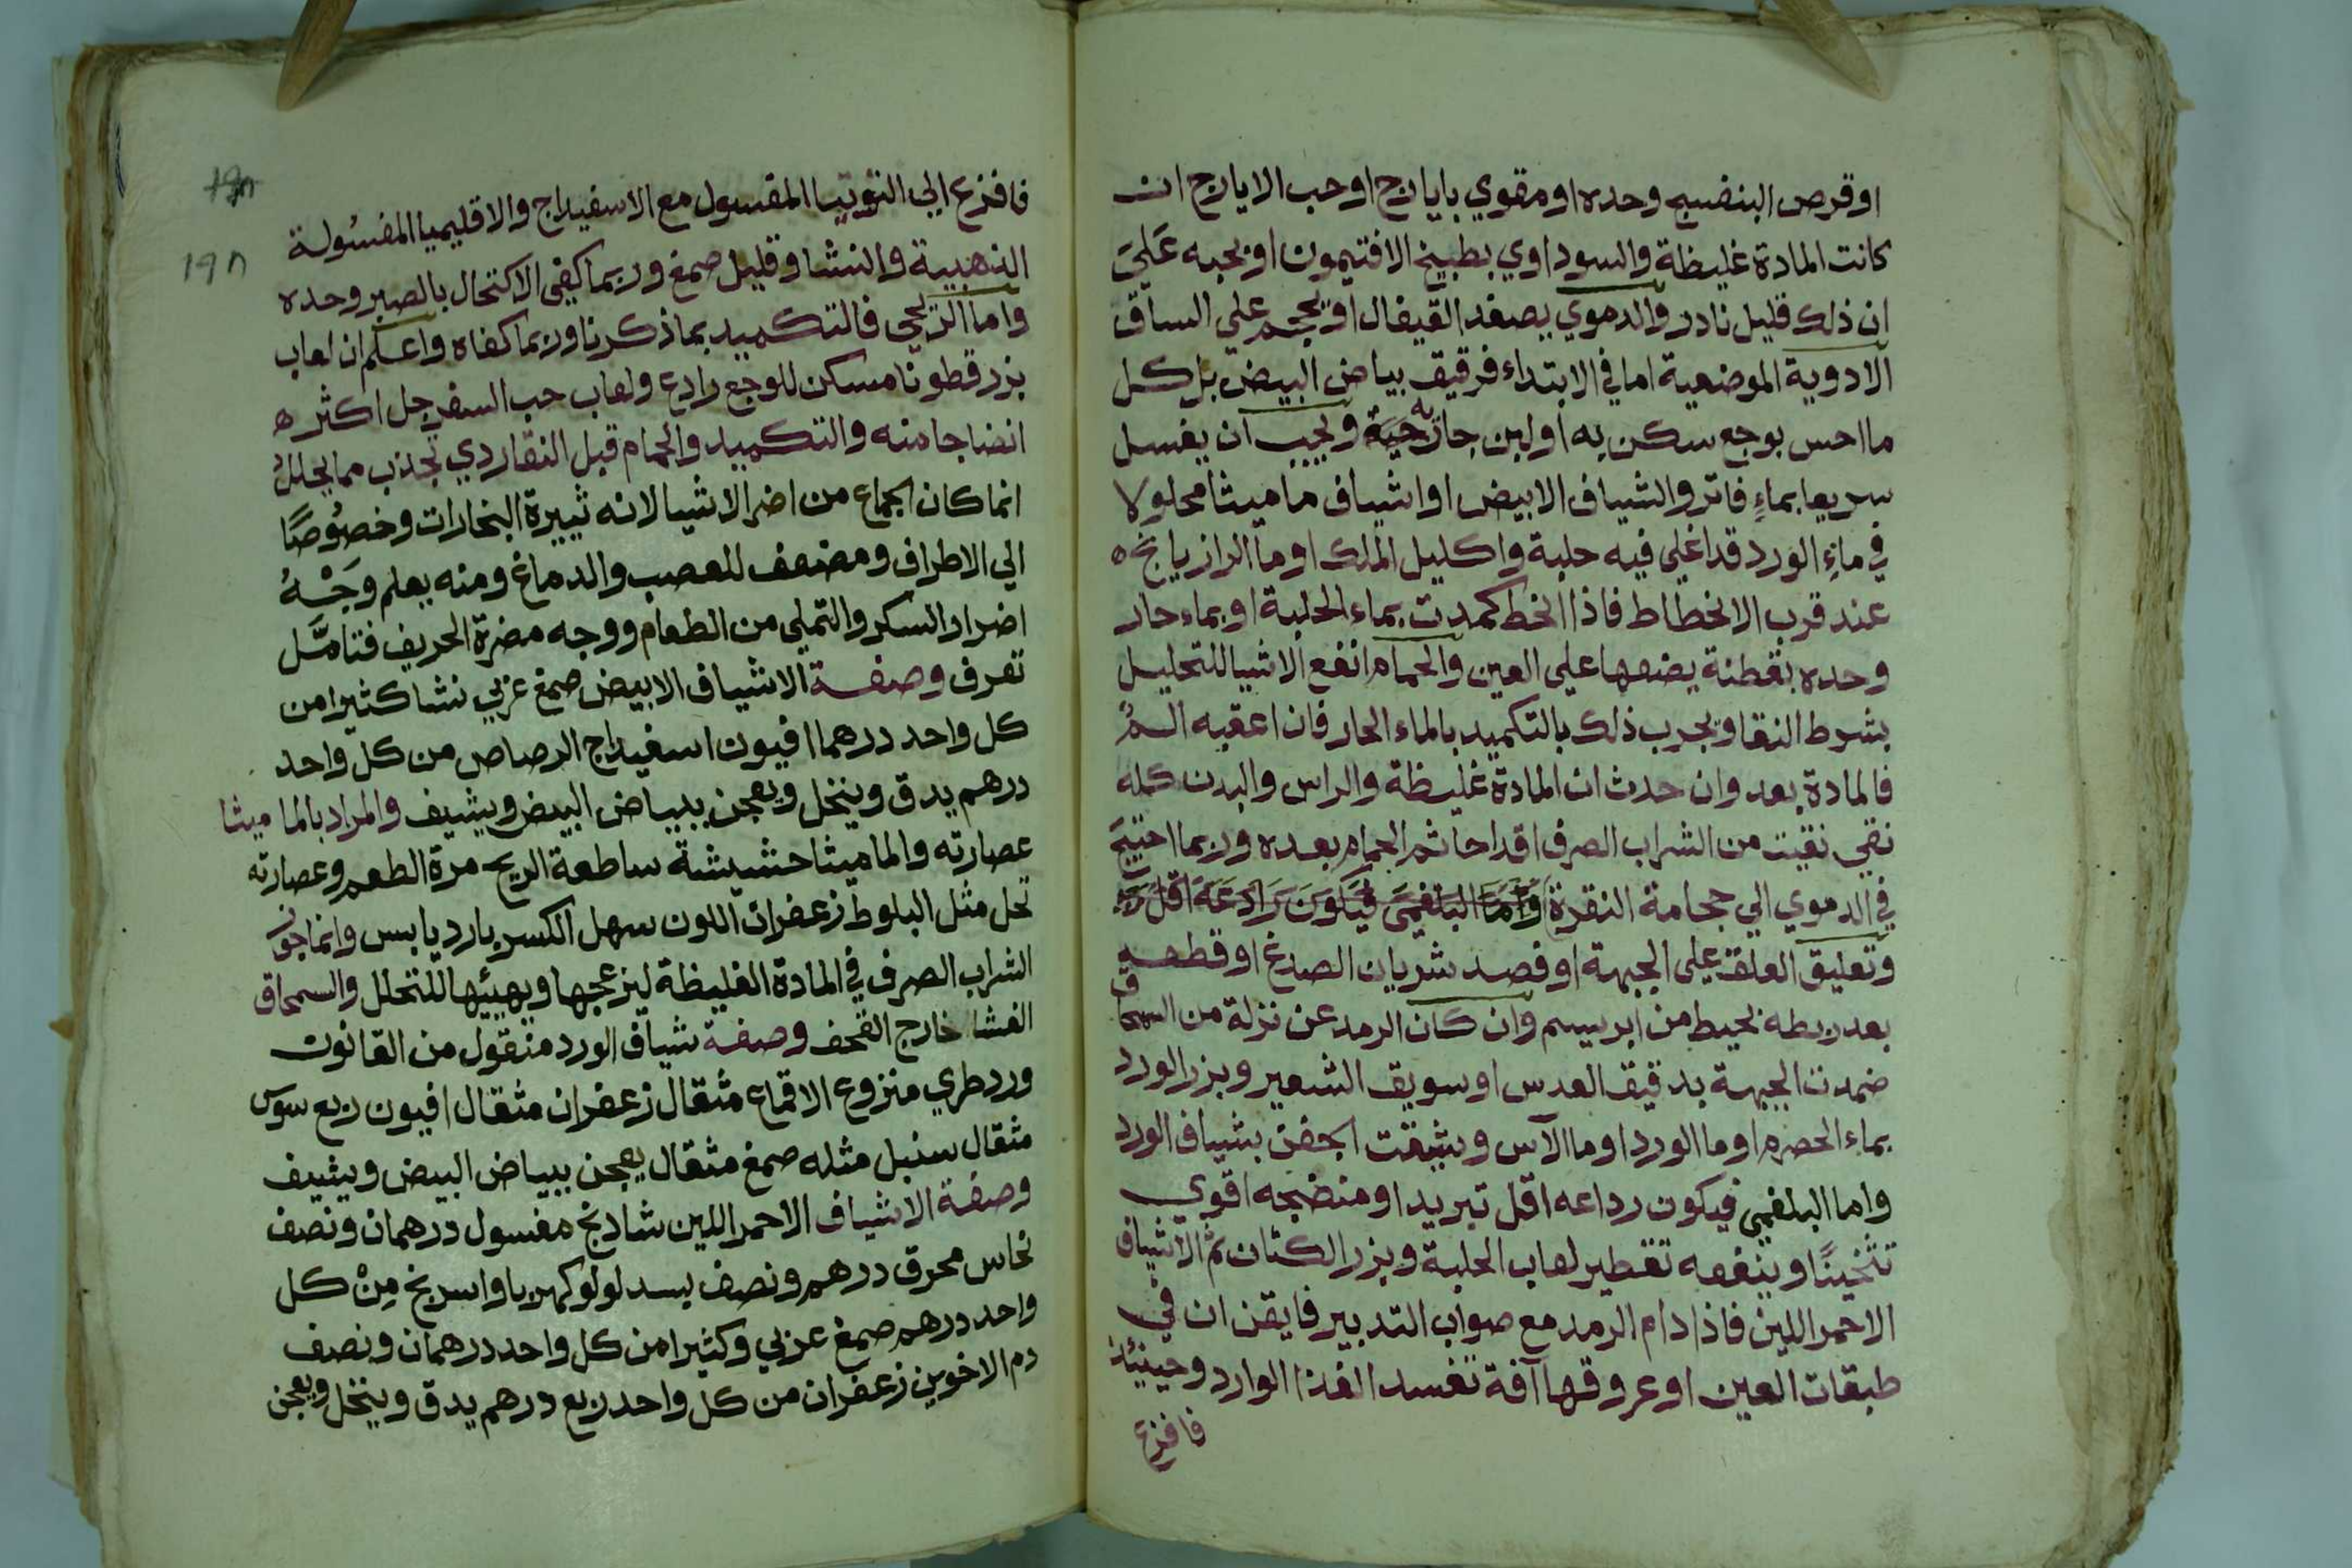 او قرص البنفسج وحده او مقوي بايارج او حب الايارج ان
كانت المادة غليظة والسوداوي بطبيخ الافتيمون او بحبه عَليَ
ان ذلك قليل نادر والدموي يفصد القيفال او يحجم علي الساق
الادوية الموضعية اما في الابتداء فرقيق بياض البيض بل كل
ما احس بوجع سكن به او لبن جارية ويجب ان يغسل
سريعا بماءٍ فاتر والشياف الابيض او اشياف ماميثا محلولا
في ماءِ الورد قد اغلي فيه حلبة واكليل الملك او ما الرازيانج ه
عند قرب الانحطاط فاذا انحط كمدت بماء الحلبة او بماء حار
وحده بقطنة يضعها علي العين والحمام انفع الاشيا للتحليل
بشرط النقا ويجرب ذلك بالتكميد بالماء الحار فان اعقبه الم
فالمادة بعد وان حدث ان المادة غليظة والراس والبدن كله
نقي نقيت من الشراب الصرف اقداحا ثم الحمام بعده وربما احتيج
في الدموي الي حجامة النقرة واما البلغمي فيكون رادعه اقل
وتعليق العلق علي الجبهة او فصد شريان الصدغ او قطعه
بعد ربطه بخيط من ابريسم وان كان الرمد عن نزلة من السمحاق
ضمدت الجبهة بدقيق العدس او سويق الشعير وبزر الورد
بماء الحصرم او ما الورد او ما الآس وشيفت الجفن بشياف الورد
واما البلغمي فيكون رداعه اقل تبريدا ومنضجه اقوي
تثخينًا وينفعه تقطير لعاب الحلبة وبزر الكتان ثم الاشياف
الاحمر اللين فاذا دام الرمد مع صواب التدبير فايقن ان في
طبقات العين او عروقها آفة تفسد الغذا الوارد وحينئذ
فافزع
١٩٨
فافزع الي التوتيا المغسول مع الاسفيداج والاقليميا المغسُولة
الذهبية والنشا وقليل صمغ وربما كفي الاكتحال بالصبر وحده
واما الريحي فالتكميد بما ذكرنا وربما كفاه واعلم ان لعاب
بزر قطونا مسكن للوجع رادع ولعاب حب السفرجل اكثر ه
انضاجا منه والتكميد والحمام قبل النقا ردي تجذب مما يحلل
انما كان الجماع من اضر الاشيا لانه ثييرة البخارات وخصُوصًا
الي الاطراف ومضعف للعصب والدماغ ومنه يعلم وَجْهُ
اضرار السكر والتملي من الطعام ووجه مضرة الحريف فتامَّل
تعرف وصفة الاشياف الابيض صمغ عربي نشا كثيرا من
كل واحد درهما افيون اسفيداج الرصاص من كل واحد
درهم يدق وينخل ويعجن ببياض البيض ويشيف والمراد بالماميثا
عصارته والماميثا حشيشة ساطعة الريح مرة الطعم وعصارته
تحل مثل البلوط زعفران اللون سهل الكسر بارد يابس وانما جوز
الشراب الصرف في المادة الغليظة ليزعجها ويهيئها للتحلل والسمحاق
الغشا خارج القحف وصفة شياف الورد منقول من القانون
ورد طري منزوع الاقماع مثقال زعفران مثقال افيون ربع سوس
مثقال سنبل مثله صمغ مثقال يعجن ببياض البيض ويشيف
وصفة الاشياف الاحمر اللين شادنج مغسول درهمان ونصف
نحاس محرق درهم ونصف بسد لولو كهربا واسرنج مِنْ كل
واحد درهم صمغ عربي وكثيرا من كل واحد درهمان ونصف
دم الاخوين زعفران من كل واحد ربع درهم يدق وينخل ويعجن